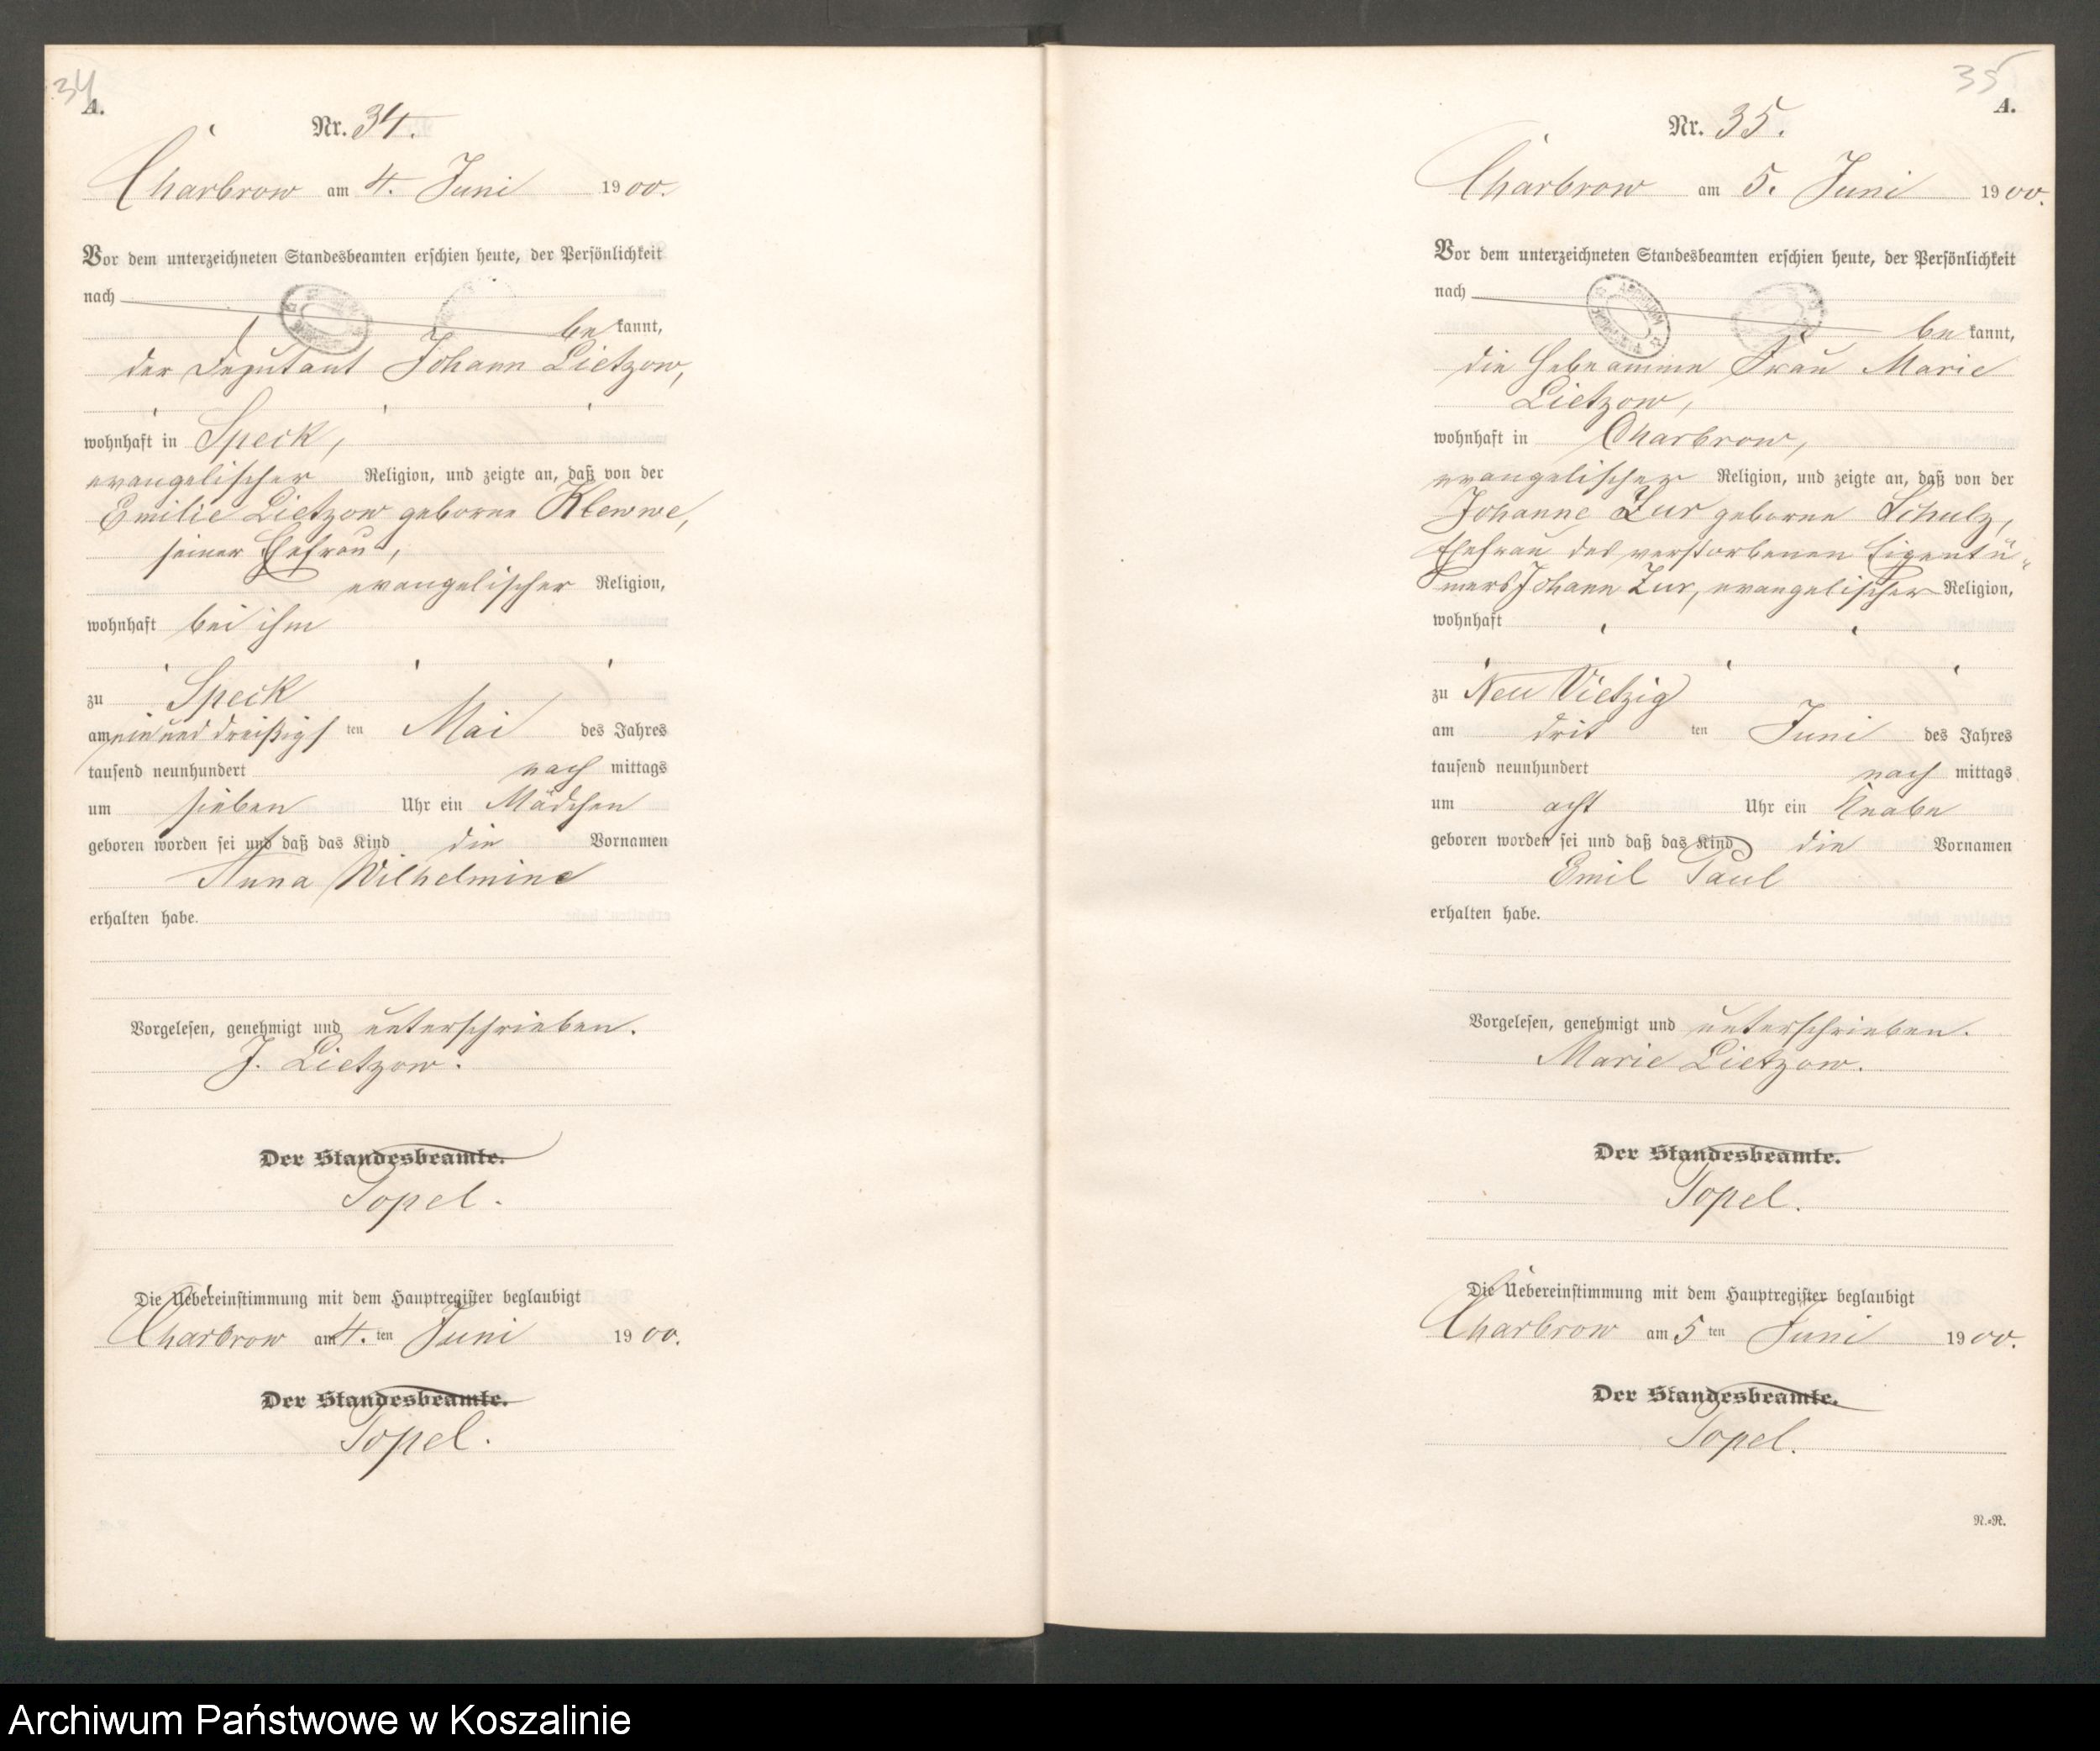 34
A.
Nr. 34.
Charbrow am 4. Juni 1900.
Vor dem unterzeichneten Standesbeamten erschien heute, der Persönlichkeit
nach
bekannt,
der Deputant Johann Lietzow,
wohnhaft in Speck,
evangelischer Religion, und zeigte an, daß von der
Emilie Lietzow geborne Klewwe,
seiner Ehefrau,
evangelischer Religion,
wohnhaft bei ihm
zu Speck
am ein und dreißigsten Mai des Jahres
tausend neunhundert nachmittags
um sieben Uhr ein Mädchen
geboren worden sei und daß das Kind die Vornamen
Anna Wilhelmine
erhalten habe.
Vorgelesen, genehmigt und unterschrieben.
J. Lietzow.
Der Standesbeamte.
Topel.
Die Uebereinstimmung mit dem Hauptregister beglaubigt
Charbrow am 4. ten Juni 1900.
Der Standesbeamte.
Topel.
35
A.
Nr. 35.
Charbrow am 5. Juni 1900.
Vor dem unterzeichneten Standesbeamten erschien heute, der Persönlichkeit
nach
bekannt,
die Hebeamme Frau Marie
Lietzow,
wohnhaft in Charbrow,
evangelischer Religion, und zeigte an, daß von der
Johanne Zur geborne Schulz,
Ehefrau des verstorbenen Eigentü-
mers Johann Zur, evangelischer Religion,
wohnhaft
zu Neu Vietzig
am dritten Juni des Jahres
tausend neunhundert nachmittags
um acht Uhr ein Knabe
geboren worden sei und daß das Kind die Vornamen
Emil Paul
erhalten habe.
Vorgelesen, genehmigt und unterschrieben.
Marie Lietzow.
Der Standesbeamte.
Topel.
Die Uebereinstimmung mit dem Hauptregister beglaubigt
Charbrow am 5 ten Juni 1900.
Der Standesbeamte.
Topel.
N.=R.
Archiwum Państwowe w Koszalinie